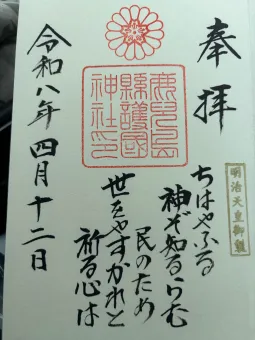 奉拝
鹿児島
縣護國
神社印
明治天皇御製
ちはやふる
神ぞ知るらむ
民のため
世をやすかれと
祈る心は
令和八年四月十二日